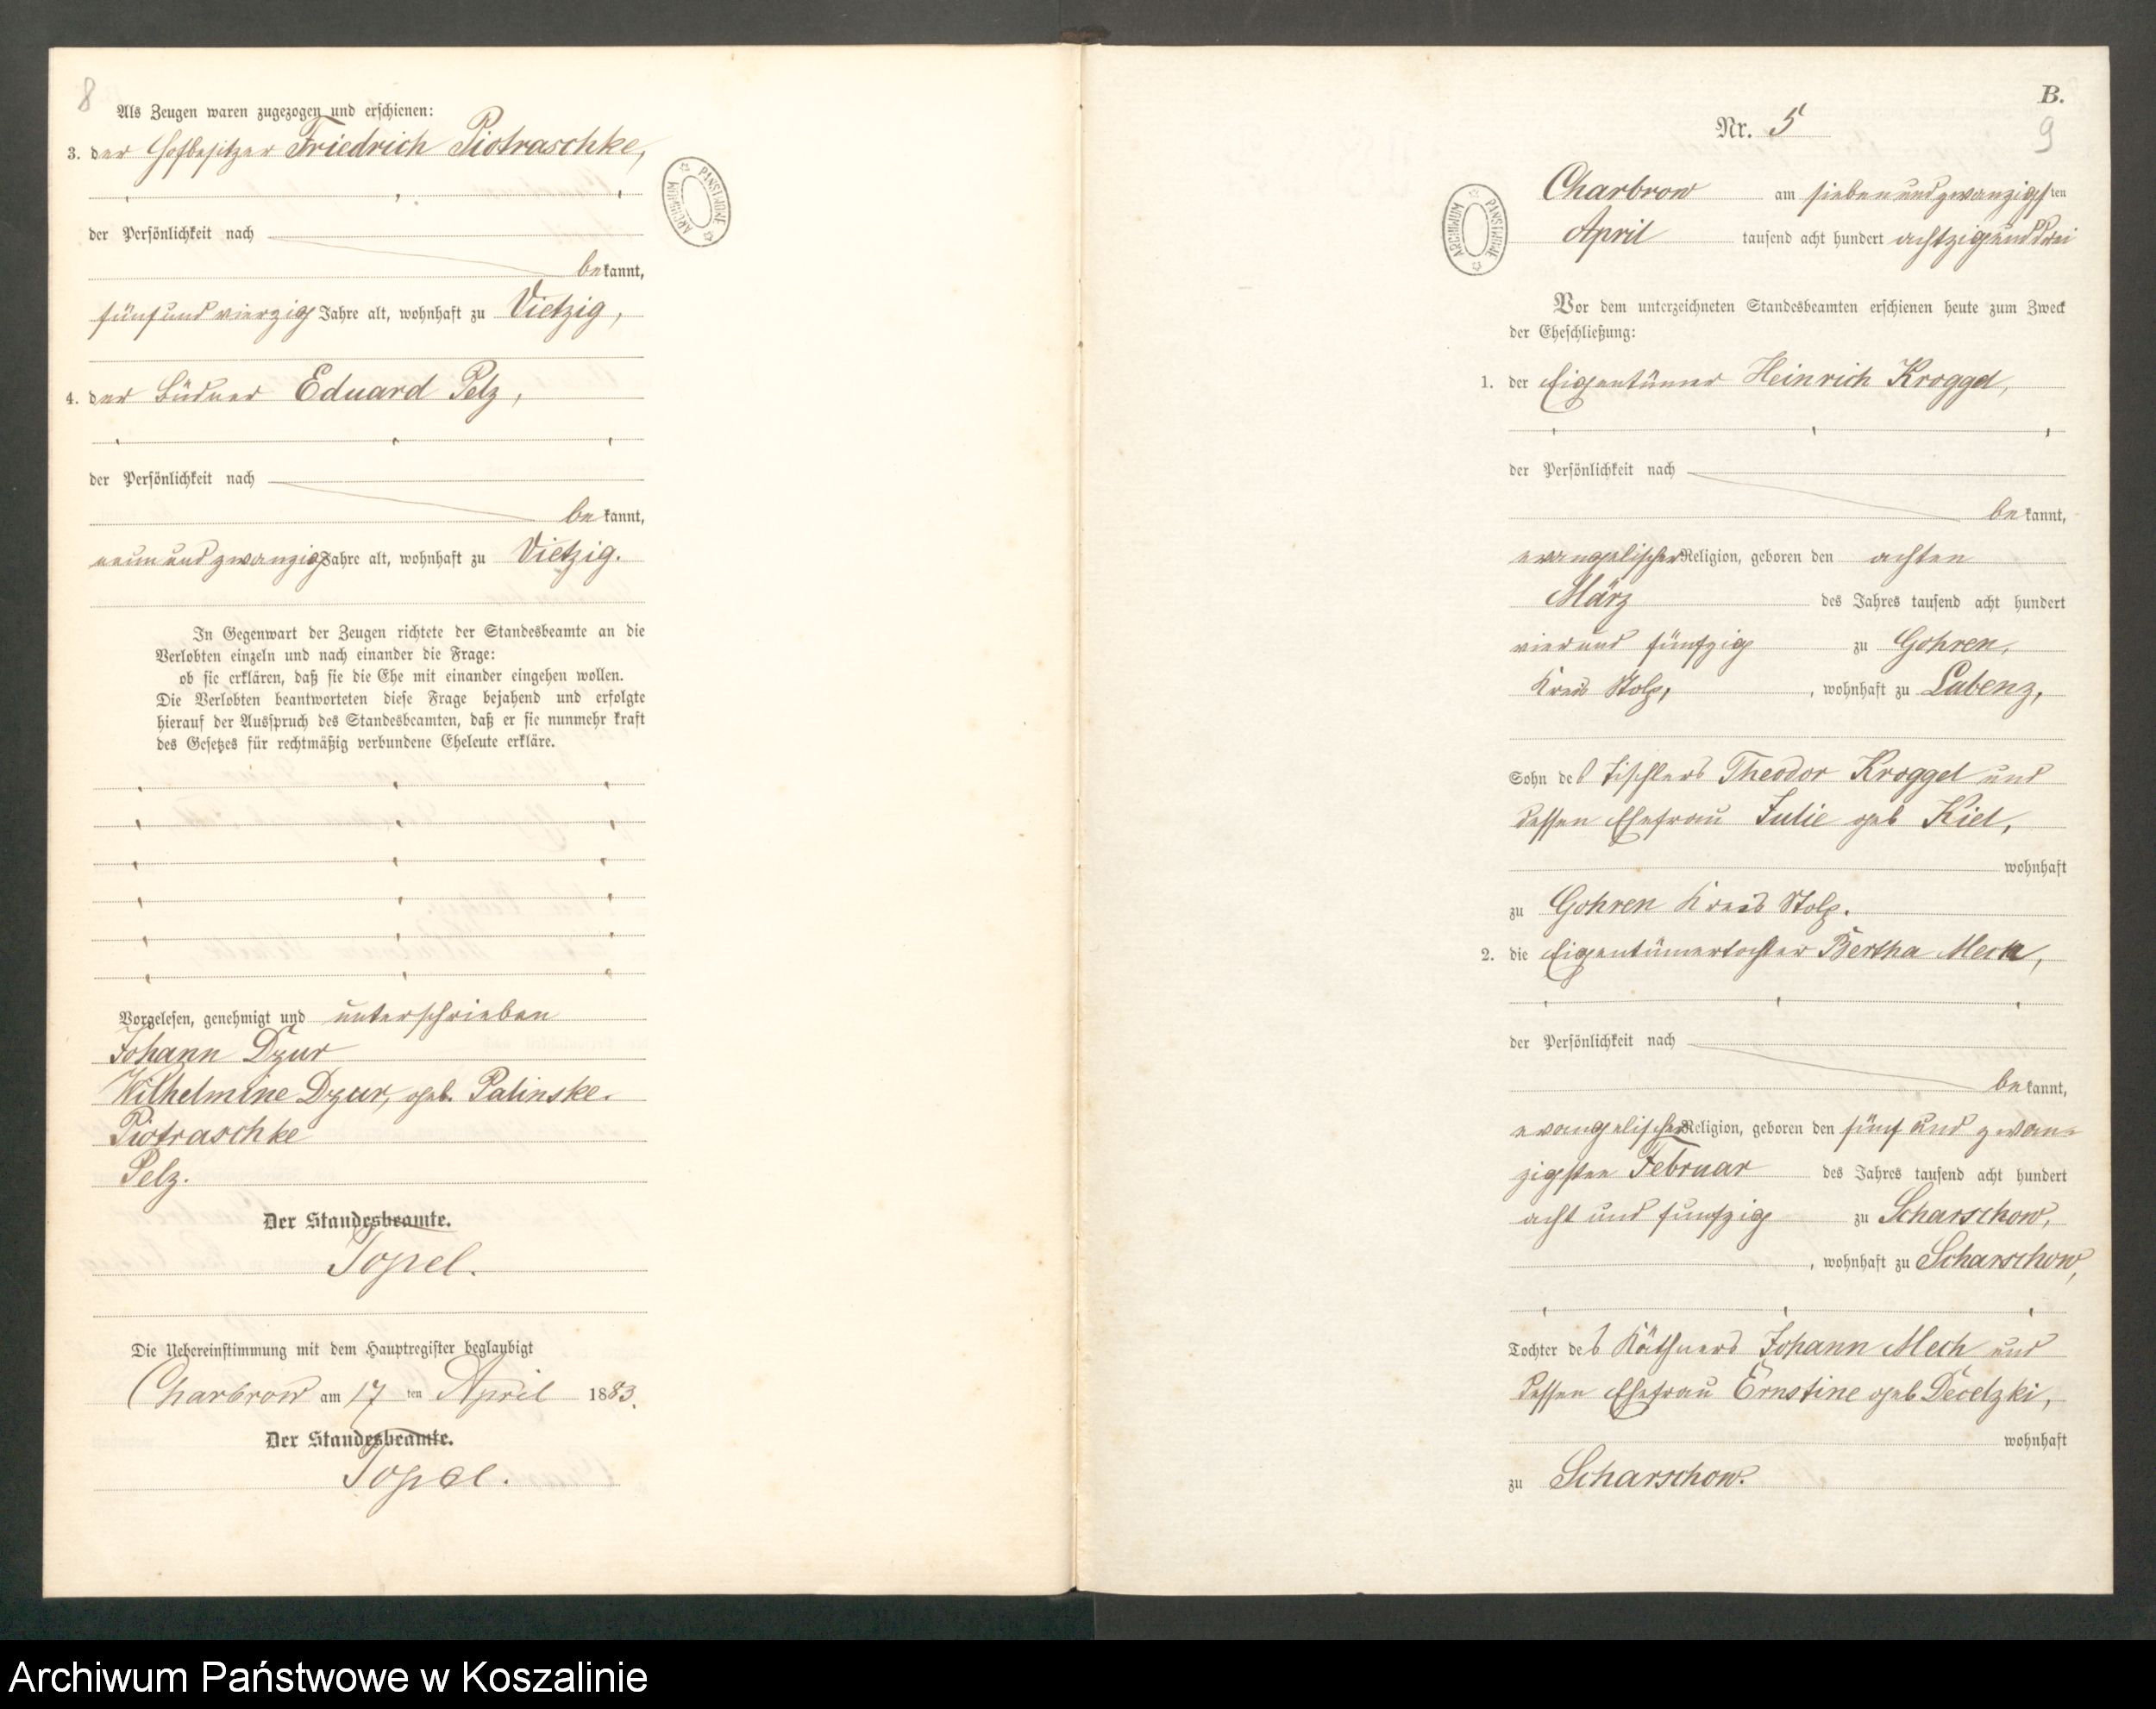 8
Als Zeugen waren zugezogen und erschienen:
3. der Hofbesitzer Friedrich Piotraschke,
der Persönlichkeit nach
bekannt,
fünf und vierzig Jahre alt, wohnhaft zu Vietzig,
4. der Büdner Eduard Pelz,
der Persönlichkeit nach
bekannt,
neun und zwanzig Jahre alt, wohnhaft zu Vietzig.
In Gegenwart der Zeugen richtete der Standesbeamte an die
Verlobten einzeln und nach einander die Frage:
ob sie erklären, daß sie die Ehe mit einander eingehen wollen.
Die Verlobten beantworteten diese Frage bejahend und erfolgte
hierauf der Ausspruch des Standesbeamten, daß er sie nunmehr kraft
des Gesetzes für rechtmäßig verbundene Eheleute erkläre.
Vorgelesen, genehmigt und unterschrieben
Johann Dzur
Wilhelmine Dzur, geb. Palinske.
Piotraschke
Pelz.
Der Standesbeamte.
Topel.
Die Uebereinstimmung mit dem Hauptregister beglaubigt
Charbrow am 17 ten April 1883.
Der Standesbeamte.
Topel.
ARCHIWUM PAŃSTWOWE
B.
9
Nr. 5
ARCHIWUM PAŃSTWOWE
Charbrow am sieben und zwanzigsten
April tausend acht hundert achtzig und drei
Vor dem unterzeichneten Standesbeamten erschienen heute zum Zweck
der Eheschließung:
1. der Eigentümer Heinrich Kroggel,
der Persönlichkeit nach
bekannt,
evangelischer Religion, geboren den achten
März des Jahres tausend acht hundert
vier und fünfzig zu Gohren,
Kreis Stolp, , wohnhaft zu Labenz,
Sohn des Tischlers Theodor Kroggel und
dessen Ehefrau Julie geb Kiel,
wohnhaft
zu Gohren Kreis Stolp.
2. die Eigentümertochter Bertha Mech,
der Persönlichkeit nach
bekannt,
evangelischer Religion, geboren den fünf und zwan-
zigsten Februar des Jahres tausend acht hundert
acht und funfzig zu Scharschow,
, wohnhaft zu Scharschow,
Tochter des Käthners Johann Mech und
dessen Ehefrau Ernstine geb Decetzki,
wohnhaft
zu Scharschow.
Archiwum Państwowe w Koszalinie